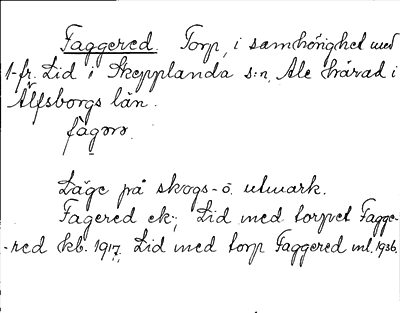 Faggered. Torp, i samhörighet med
1-fr. Lid i Skepplanda s:n, Ale härad i
Älfsborgs län.
fàgərə
Läge på skogs- o. utmark.
Fagered ek.; Lid med torpet Fagge-
-red kb. 1917; Lid med torp Faggered ml. 1936.